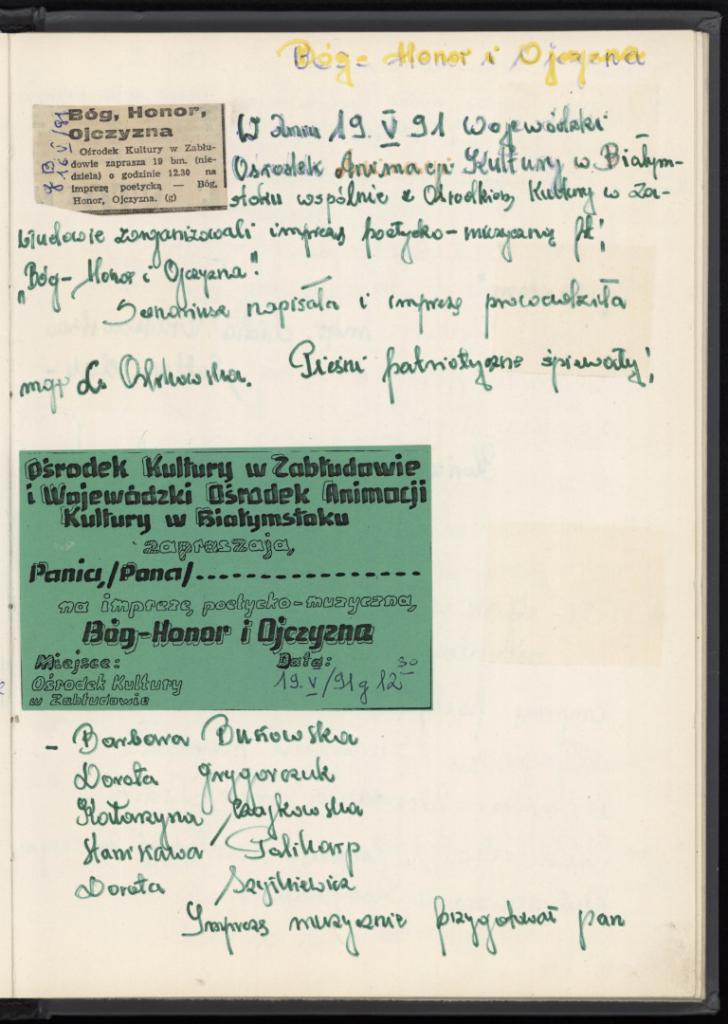 Bóg - Honor i Ojczyzna
Bóg, Honor,
Ojczyzna
Ośrodek Kultury w Zabłu-
dowie zaprasza 19 bm. (nie-
dziela) o godzinie 12.30 na
imprezę poetycką — Bóg,
Honor, Ojczyzna. (g)
16 V/91
W dniu 19. V 91 Wojewódzki
Ośrodek Animacji Kultury w Białym-
stoku wspólnie z Ośrodkiem Kultury w Za-
błudowie zorganizowali imprezę poetycko-muzyczną pt:
"Bóg - Honor i Ojczyzna".
Scenariusz napisała i imprezę prowadziła
mgr Pieśni patriotyczne śpiewały:
Ośrodek Kultury w Zabłudowie
i Wojewódzki Ośrodek Animacji
Kultury w Białymstoku
zapraszają
Panią/Pana/....................
na imprezę poetycko-muzyczną
Bóg-Honor i Ojczyzna
Miejsce:
Ośrodek Kultury
w Zabłudowie
Data:
19.V/91 g 12 30
- Barbara
Dorota Grygorczuk
Katarzyna Czajkowska
Stanisława Polikarp
Dorota
Imprezę muzycznie przygotował pan